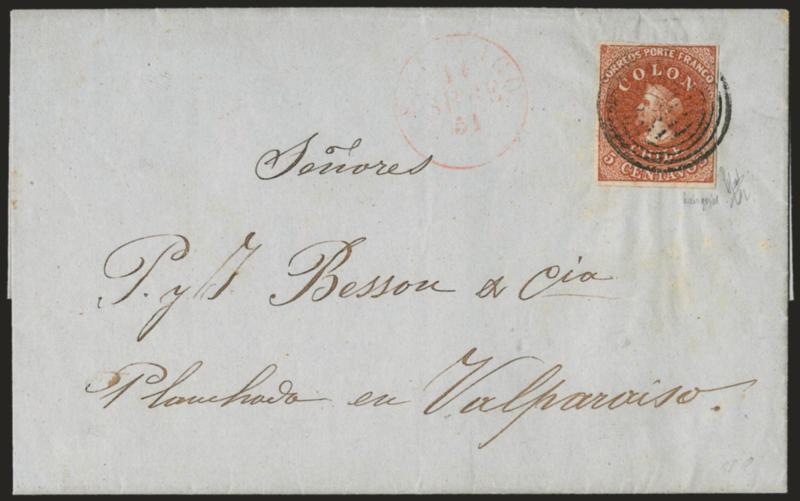 CORREOS PORTE FRANCO
COLON
CHILE
5 CENTAVOS
51
Señores
P. y J Besson & Cia
Planchada en Valparaiso.